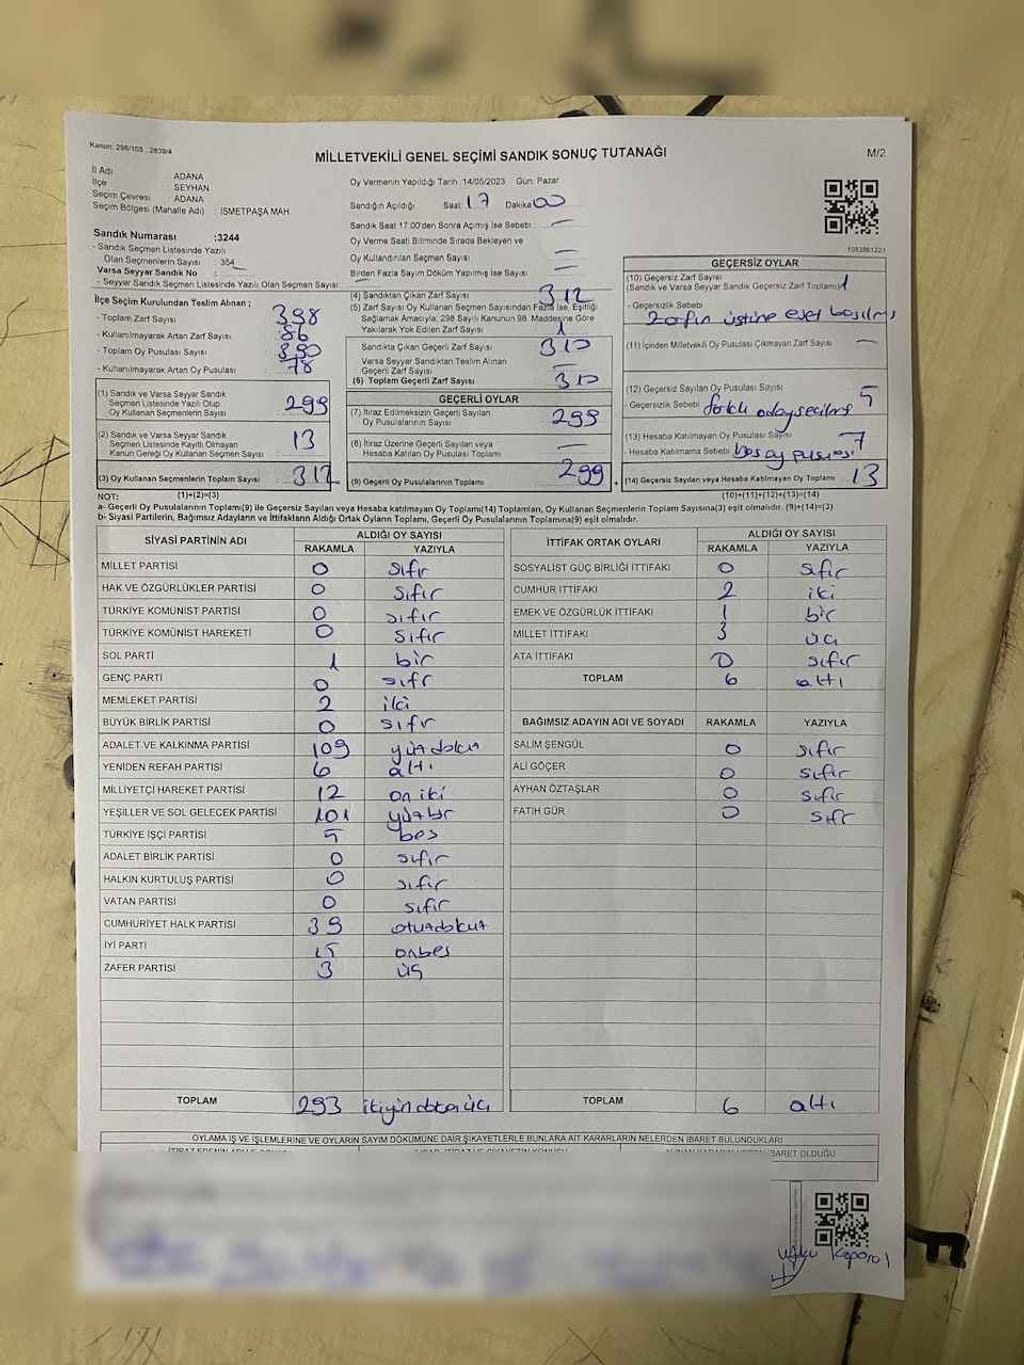 Kanun: 298/105 , 2839/4
MİLLETVEKİLİ GENEL SEÇİMİ SANDIK SONUÇ TUTANAĞI
M/2
İl Adı : ADANA
İlçe : SEYHAN
Seçim Çevresi : ADANA
Seçim Bölgesi (Mahalle Adı) : İSMETPAŞA MAH
Sandık Numarası :3244
- Sandık Seçmen Listesinde Yazılı
Olan Seçmenlerin Sayısı : 354
Varsa Seyyar Sandık No :
- Seyyar Sandık Seçmen Listesinde Yazılı Olan Seçmen Sayısı:
Oy Vermenin Yapıldığı Tarih :14/05/2023 Gün: Pazar
Sandığın Açıldığı Saat: 17 Dakika 00
Sandık Saat 17:00'den Sonra Açımış İse Sebebi : —
Oy Verme Saati Bitiminde Sırada Bekleyen ve
Oy Kullandırılan Seçmen Sayısı : —
Birden Fazla Sayım Döküm Yapılmış İse Sayısı : —
1083861221
İlçe Seçim Kurulundan Teslim Alınan ;
- Toplam Zarf Sayısı : 398
- Kullanılmayarak Artan Zarf Sayısı : 86
- Toplam Oy Pusulası Sayısı : 390
- Kullanılmayarak Artan Oy Pusulası : 78
(1) Sandık ve Varsa Seyyar Sandık
Seçmen Listesinde Yazılı Olup
Oy Kullanan Seçmenlerin Sayısı 299
(2) Sandık ve Varsa Seyyar Sandık
Seçmen Listesinde Kayıtlı Olmayan
Kanun Gereği Oy Kullanan Seçmen Sayısı 13
(3) Oy Kullanan Seçmenlerin Toplam Sayısı : 312
(4) Sandıktan Çıkan Zarf Sayısı : 312
(5) Zarf Sayısı Oy Kullanan Seçmen Sayısından Fazla İse, Eşitliği
Sağlamak Amacıyla, 298 Sayılı Kanunun 98. Maddesine Göre
Yakılarak Yok Edilen Zarf Sayısı : 1
Sandıkta Çıkan Geçerli Zarf Sayısı :
Varsa Seyyar Sandıktan Teslim Alınan
Geçerli Zarf Sayısı : —
(6) Toplam Geçerli Zarf Sayısı :
GEÇERLİ OYLAR
(7) İtiraz Edilmeksizin Geçerli Sayılan
Oy Pusulalarının Sayısı : 299
(8) İtiraz Üzerine Geçerli Sayılan veya
Hesaba Katılan Oy Pusulası Toplamı : —
(9) Geçerli Oy Pusulalarının Toplamı : 299
GEÇERSİZ OYLAR
(10) Geçersiz Zarf Sayısı
(Sandık ve Varsa Seyyar Sandık Geçersiz Zarf Toplamı) 1
- Geçersizlik Sebebi
Zarfın üstüne evet basılmış
(11) İçinden Milletvekili Oy Pusulası Çıkmayan Zarf Sayısı : —
(12) Geçersiz Sayılan Oy Pusulası Sayısı : 5
- Geçersizlik Sebebi farklı adayseçilmiş
(13) Hesaba Katılmayan Oy Pusulası Sayısı 7
- Hesaba Katılmama Sebebi boş oy pusulası
+ (14) Geçersiz Sayılan veya Hesaba Katılmayan Oy Toplamı : 13
NOT: (1)+(2)=(3) (10)+(11)+(12)+(13)=(14)
a- Geçerli Oy Pusulalarının Toplamı(9) ile Geçersiz Sayılan veya Hesaba katılmayan Oy Toplamı(14) Toplamları, Oy Kullanan Seçmenlerin Toplam Sayısına(3) eşit olmalıdır. (9)+(14)=(3)
b- Siyasi Partilerin, Bağımsız Adayların ve İttifakların Aldığı Ortak Oyların Toplamı, Geçerli Oy Pusulalarının Toplamına(9) eşit olmalıdır.
SİYASİ PARTİNİN ADI ALDIĞI OY SAYISI
RAKAMLA YAZIYLA
MİLLET PARTİSİ 0 sıfır
HAK VE ÖZGÜRLÜKLER PARTİSİ 0 sıfır
TÜRKİYE KOMÜNİST PARTİSİ 0 sıfır
TÜRKİYE KOMÜNİST HAREKETİ 0 sıfır
SOL PARTİ 1 bir
GENÇ PARTİ 0 sıfr
MEMLEKET PARTİSİ 2 iki
BÜYÜK BİRLİK PARTİSİ 0 sıfr
ADALET VE KALKINMA PARTİSİ 109 yüzdokuz
YENİDEN REFAH PARTİSİ 6 altı
MİLLİYETÇİ HAREKET PARTİSİ 12 on iki
YEŞİLLER VE SOL GELECEK PARTİSİ 101 yüzbir
TÜRKİYE İŞÇİ PARTİSİ 5 beş
ADALET BİRLİK PARTİSİ 0 sıfır
HALKIN KURTULUŞ PARTİSİ 0 sıfır
VATAN PARTİSİ 0 sıfır
CUMHURİYET HALK PARTİSİ 39 otuzdokuz
İYİ PARTİ 15 onbeş
ZAFER PARTİSİ 3 üç
TOPLAM 293 ikiyüzdoksanüç
İTTİFAK ORTAK OYLARI ALDIĞI OY SAYISI
RAKAMLA YAZIYLA
SOSYALİST GÜÇ BİRLİĞİ İTTİFAKI 0 sıfır
CUMHUR İTTİFAKI 2 iki
EMEK VE ÖZGÜRLÜK İTTİFAKI 1 bir
MİLLET İTTİFAKI 3 üç
ATA İTTİFAKI 0 sıfır
TOPLAM 6 altı
BAĞIMSIZ ADAYIN ADI VE SOYADI RAKAMLA YAZIYLA
SALİM ŞENGÜL 0 sıfır
ALİ GÖÇER 0 sıfır
AYHAN ÖZTAŞLAR 0 sıfır
FATİH GÜR 0 sıfr
TOPLAM 6 altı
OYLAMA İŞ VE İŞLEMLERİNE VE OYLARIN SAYIM DÖKÜMÜNE DAİR ŞİKAYETLERLE BUNLARA AİT KARARLARIN NELERDEN İBARET BULUNDUKLARI
BARET OLDUĞU